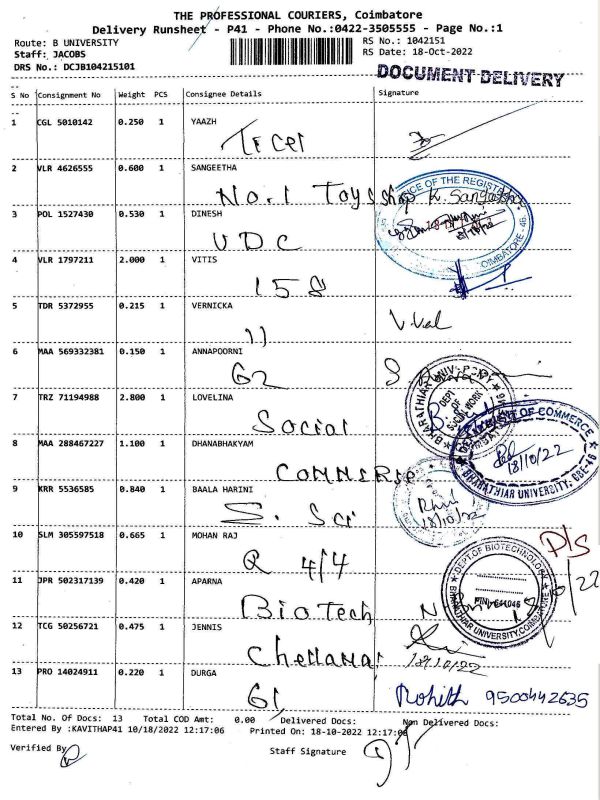 THE PROFESSIONAL COURIERS, Coimbatore
Delivery Runsheet - P41 - Phone No.:0422-3505555 - Page No.:1
Route: B UNIVERSITY
RS No.: 1042151
Staff: JACOBS
RS Date: 18-Oct-2022
DRS No.: DCJB104215101
DOCUMENT DELIVERY
S No Consignment No Weight PCS Consignee Details Signature
1 CGL 5010142 0.250 1 YAAZH
2 VLR 4626555 0.600 1 SANGEETHA
No.1 Toys shop K. Sangeetha
OFFICE OF THE REGISTR
COIMBATORE - 46
3 POL 1527430 0.530 1 DINESH
UDC
4 VLR 1797211 2.000 1 VITIS
158
5 TDR 5372955 0.215 1 VERNICKA
11 V.Val
6 MAA 569332381 0.150 1 ANNAPOORNI
G2
7 TRZ 71194988 2.800 1 LOVELINA
Social
BHARATHIAR UNIV
DEPT OF SOCIAL WORK
8 MAA 288467227 1.100 1 DHANABHAKYAM
COMMERCE
DEPARTMENT OF COMMERCE
18/10/22
BHARATHIAR UNIVERSITY, CBE-46
9 KRR 5536585 0.840 1 BAALA HARINI
S. Sci
18/10/22
10 SLM 305597518 0.665 1 MOHAN RAJ
Q 4/4
P/S
11 JPR 502317139 0.420 1 APARNA
BioTech
DEPT OF BIOTECHNOLOGY
PIN - 641046
BHARATHIAR UNIVERSITY, COIMBATORE
12 TCG 50256721 0.475 1 JENNIS
Chellamal
18/10/22
13 PRO 14024911 0.220 1 DURGA
G1 Rohith 9500442635
Total No. Of Docs: 13 Total COD Amt: 0.00 Delivered Docs: Non Delivered Docs:
Entered By :KAVITHAP41 10/18/2022 12:17:06 Printed On: 18-10-2022 12:17:06
Verified By
Staff Signature